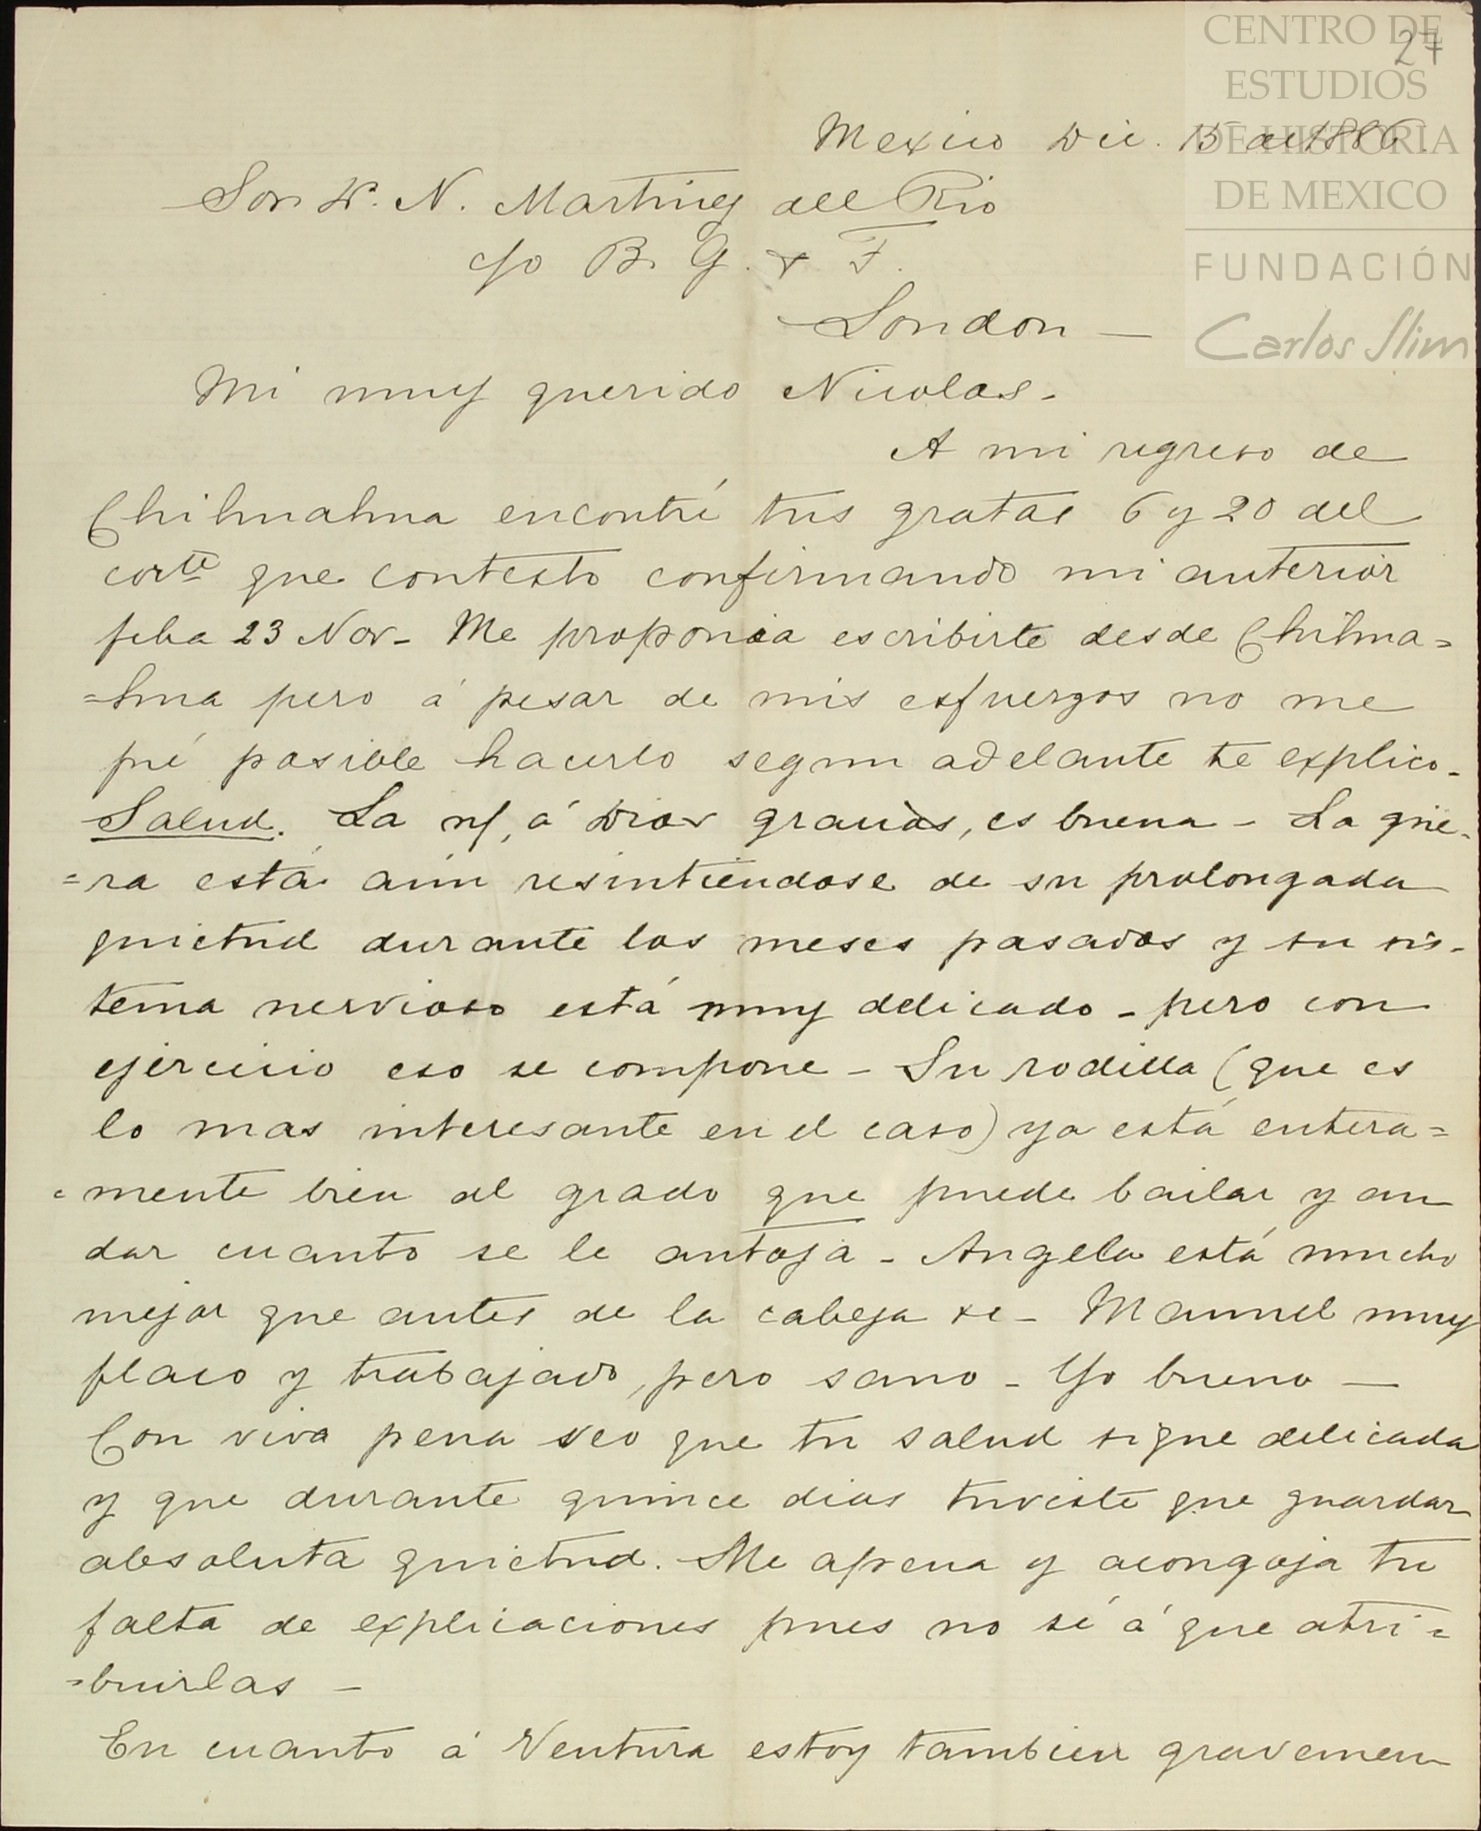 CENTRO DE
ESTUDIOS
DE HISTORIA
DE MEXICO
FUNDACIÓN
Carlos Slim
27
Mexico Dic. 15 de 1886.
Sor D. N. Martinez del Rio
c/o B. G. & F.
London —
Mi muy querido Nicolas.
A mi regreso de
Chihuahua encontré tus gratas 6 y 20 del
corte que contesto confirmando mi anterior
fcha 23 Nov - Me proponia escribirte desde Chihua=
=hua pero á pesar de mis esfuerzos no me
fué posible hacerlo segun adelante te explico -
Salud. La nf, á Dios gracias, es buena - La güe-
=ra está aún resintiéndose de su prolongada
quietud durante los meses pasados y su sis-
tema nervioso está muy delicado - pero con
ejercicio eso se compone - Su rodilla (que es
lo mas interesante en el caso) ya está entera=
=mente bien al grado que puede bailar y an
dar cuanto se le antoja - Angela está mucho
mejor que antes de la cabeza &c - Manuel muy
flaco y trabajado, pero sano - Yo bueno —
Con viva pena veo que tu salud sigue delicada
y que durante quince dias tuviste que guardar
absoluta quietud. Me apena y acongoja tu
falta de explicaciones pues no sé á que atri=
=buirlas —
En cuanto á Ventura estoy tambien gravemen